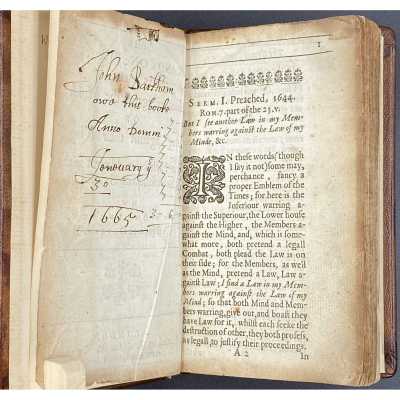 John Bartham
owd this booke
Anno Domm
Jeneuary ÿ
30
1665 3-6
1
SERM. I. Preached, 1644.
ROM. 7. part of the 23. v.
But I ſee another Law in my Mem-
bers warring againſt the Law of my
Minde, &c.
IN theſe words (though
I ſay it not) ſome may,
perchance, fancy a
proper Emblem of the
Times; for here is the
Inferiour warring a-
gainſt the Superiour, the Lower houſe
againſt the Higher, the Members a-
gainſt the Mind, and, which is ſome-
what more, both pretend a legall
Combat, both plead the Law is on
their ſide; for the Members, as well
as the Mind, pretend a Law, Law a-
gainſt Law; I find a Law in my Mem-
bers warring againſt the Law of my
Mind; ſo that both Mind and Mem-
bers warring, give out, and boaſt they
have Law for it, whilſt each ſeeke the
deſtruction of other, they both profeſs,
as legall to juſtify their proceedings.
A 2
In